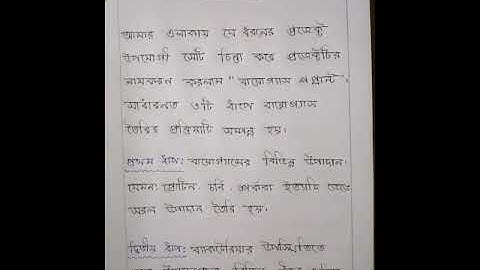 আমার এলাকায় যে ধরনের প্রজেক্ট
উপযোগী সেটি চিন্তা করে প্রজেক্টটির
নামকরন করলাম "বায়োগ্যাস প্ল্যান্ট".
সাধারনত ৩টি ধাপে বায়োগ্যাস
তৈরির প্রক্রিয়াটি সম্পন্ন হয়।
প্রথম ধাপ: বায়োগ্যাসের বিভিন্ন উপাদান
যেমন: প্রোটিন, চর্বি, শর্করা ইত্যাদি ভেঙে
সরল উপাদান তৈরি হয়।
দ্বিতীয় ধাপ: ব্যাকটেরিয়ার উপস্থিতিতে